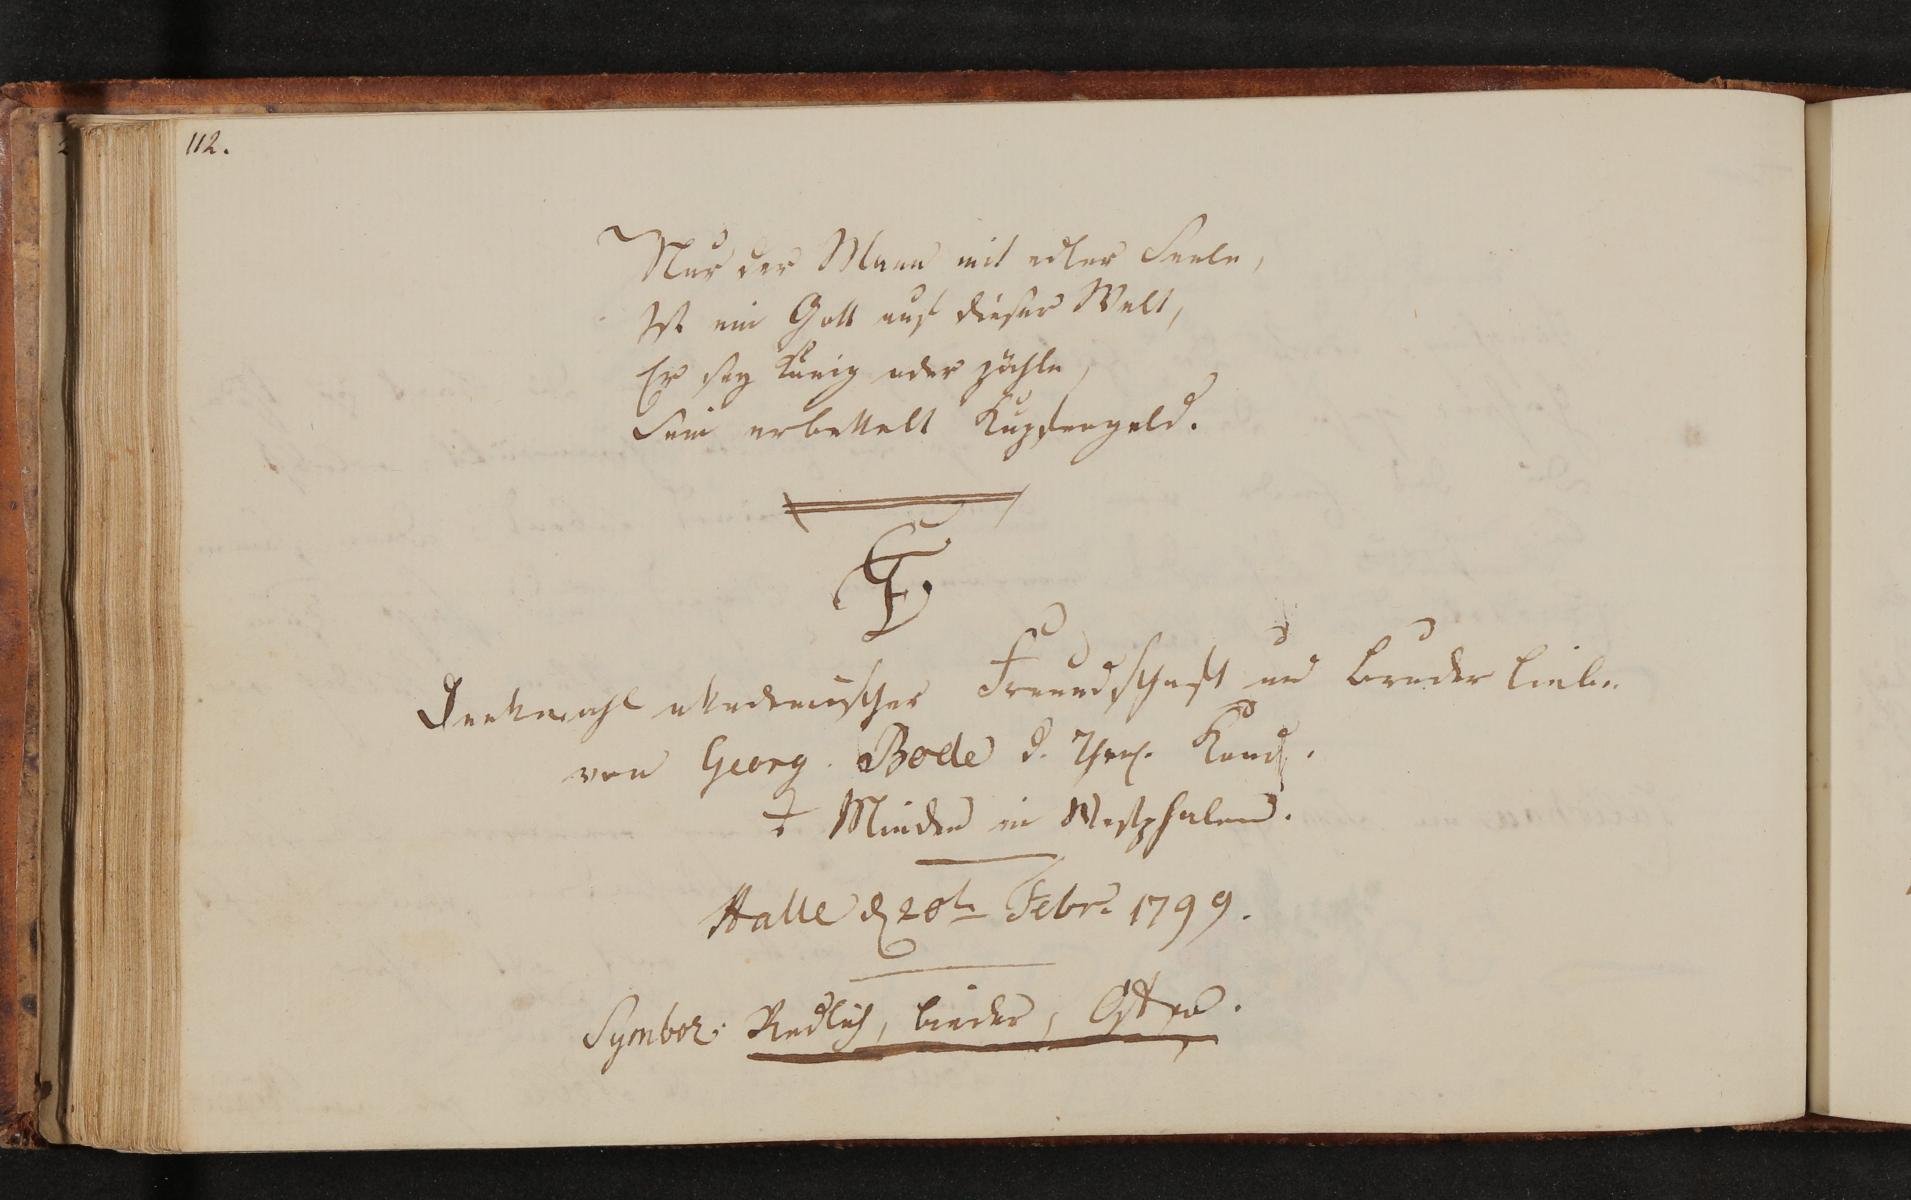 112.
Nur der Mann mit edler Seele,
Ist ein Gott auf dieser Welt,
Er sey König oder zähle,
Sein erbettelt Kupfergeld.
Denkmahl akademischer Freundschaft und Bruder liebe
von Georg Bode d. Theol. Kand.
Minden in Westphalen.
Halle d 20t Febr. 1799.
Symbol: Redlich, bieder, Offen.